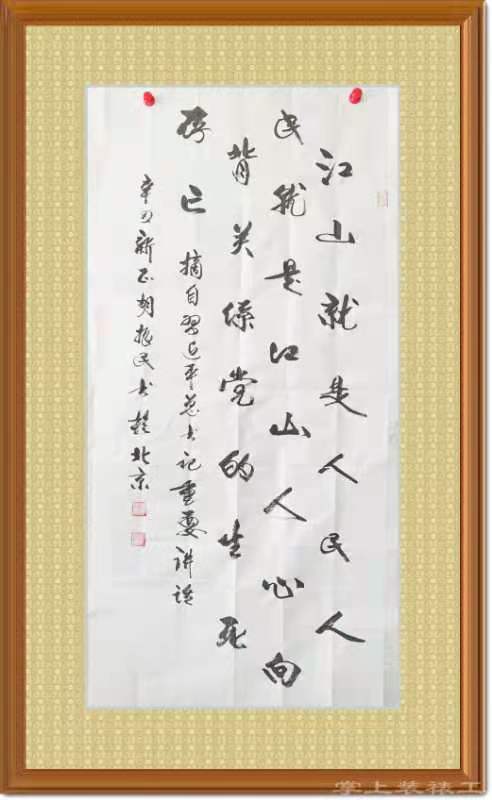 江山就是人民人
民就是江山人心向
背关係党的生死
存亡
摘自习近平总书记重要讲话
辛丑新正胡振民书於北京
掌上装裱工